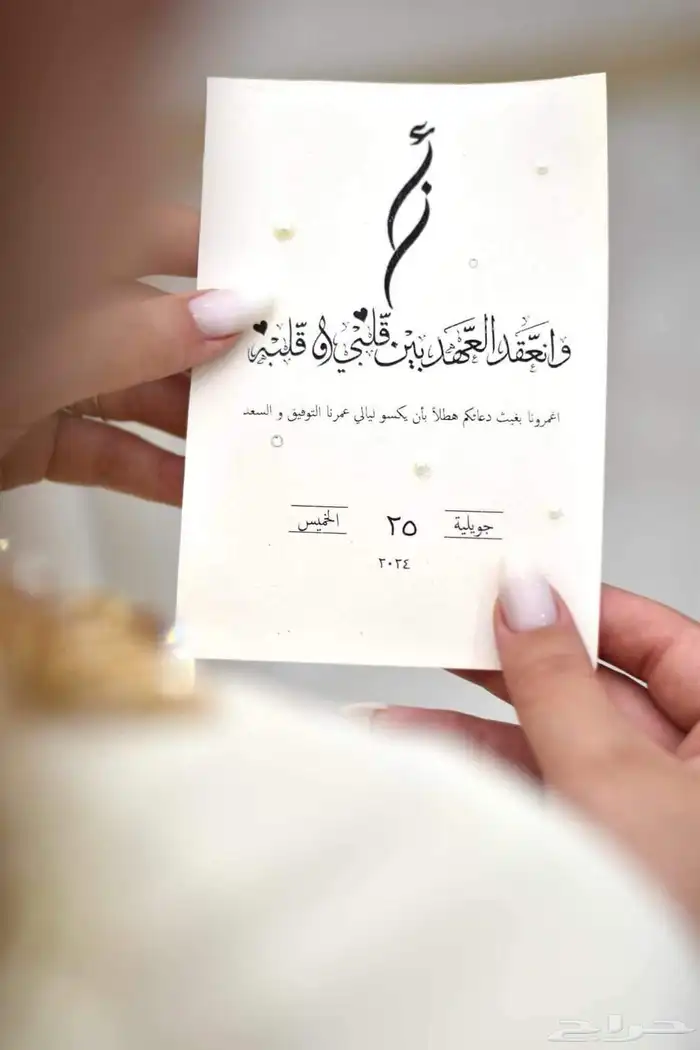 أ
ن
وَانعَّقد العَّهد بَين قَّلبْي و قَّلبْه
اغمرونا بغيث دعائكم هطلاً بأن يكسو ليالي عمرنا التوفيق و السعد
جويلية ٢٥ الخميس
٢٠٢٤
حراج